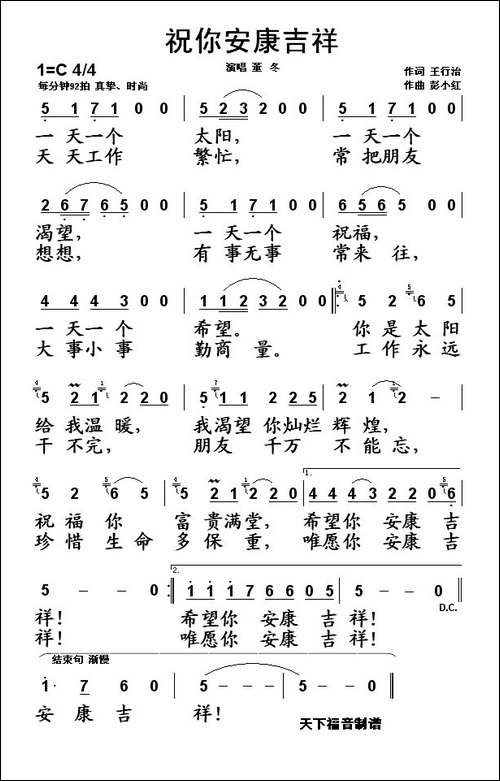 祝你安康吉祥
1=C 4/4
演唱 董 冬
作词 王行治
每分钟92拍 真挚、时尚
作曲 彭小红
5 1 7 1 0 0 5 2 3 2 0 0 5 1 7 1 0 0
一 天一个 太阳, 一 天一个
天 天工作 繁忙, 常 把朋友
2 6 7 6 5 0 0 5 1 7 1 0 0 6 5 6 5 0 0
渴望, 一 天一个 祝福,
想想, 有 事无事 常来 往,
4 4 4 3 0 0 1 1 2 3 2 0 0 5 2 6 5
一 天一个 希望。 你 是 太阳
大 事小 事 勤商 量。 工 作 永远
5 2 1 2 2 0 5 1 1 1 2 2 5 2 1 2 -
给 我温 暖, 我渴望 你灿烂 辉 煌,
干 不完, 朋友 千万 不 能忘,
5 2 6 5 5 2 1 2 2 0 4 4 4 3 2 2 0 6
祝 福 你 富 贵满堂, 希望你 安康 吉
珍 惜 生 命 多 保 重, 唯愿你 安康 吉
5 - - 0 1 1 1 7 6 6 0 5 5 - - 0
D.C.
祥! 希望你 安康 吉 祥!
祥! 唯愿你 安康 吉 祥!
结束句 渐慢
1· 7 6 0 5 - - - 5 - - 0
安 康 吉 祥!
天下福音制谱